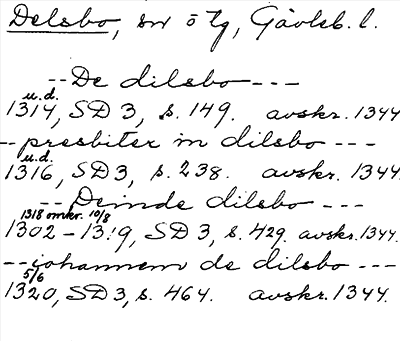 Delsbo, sn ö tg, Gävleb. l.
-- De dilsbo ---
u.d.
1314, SD 3, s. 149. avskr. 1344
-- presbiter in dilsbo ---
u.d.
1316, SD 3, s. 238. avskr. 1344.
-- Deinde dilsbo ---
1318 omkr. 10/8
1302-1319, SD 3, s. 429. avskr. 1344.
-- iohannem de dilsbo ---
5/6
1320, SD 3, s. 464. avskr. 1344.